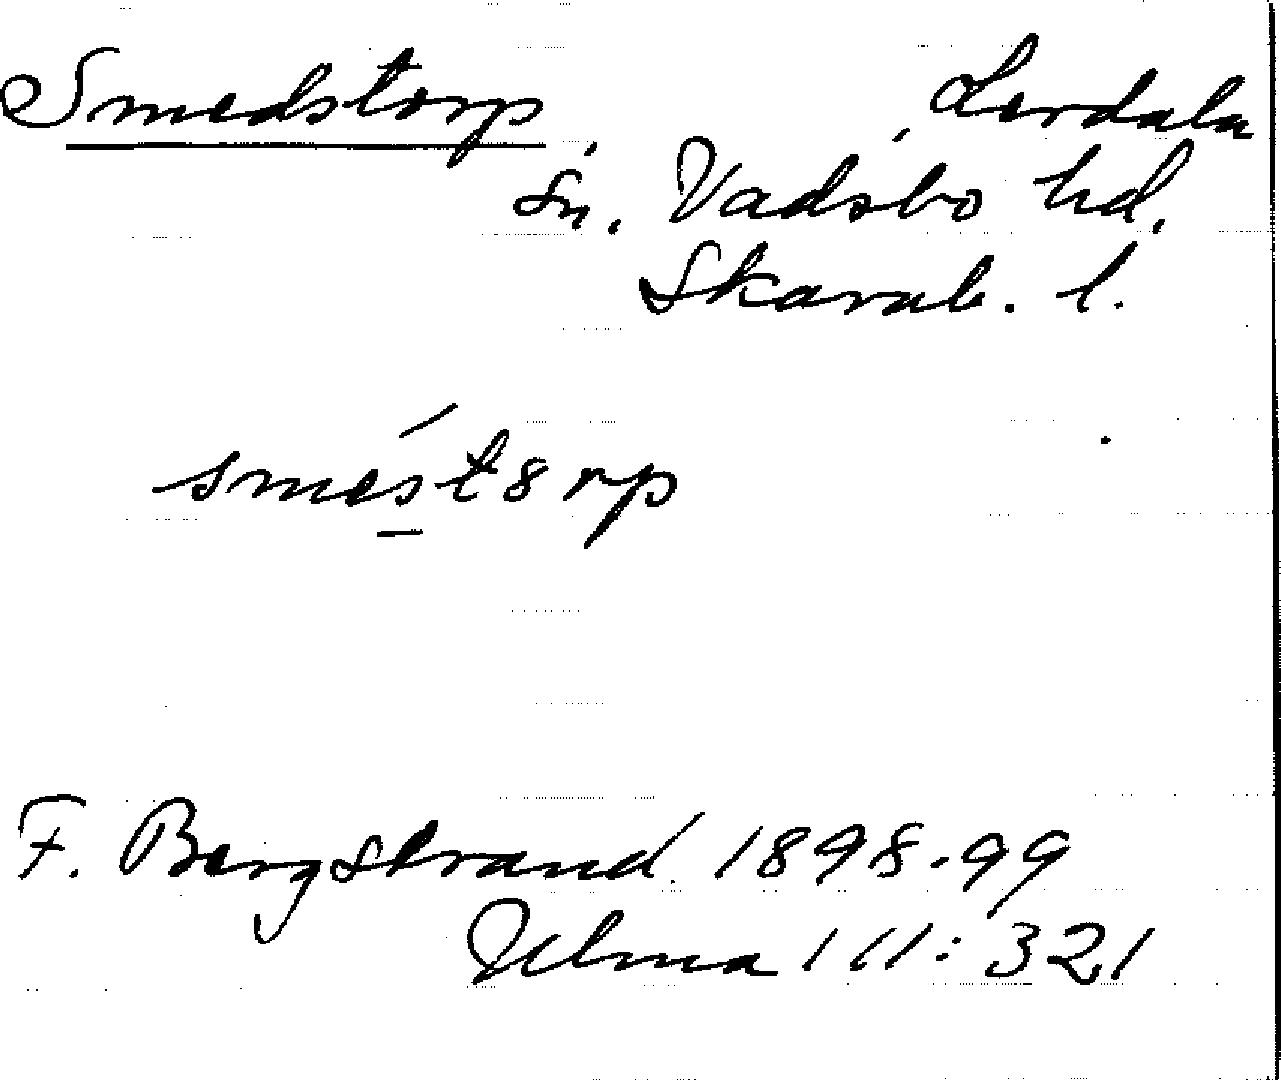 Smedstorp, Lerdala
sn. Vadsbo hd.
Skarab. l.
smést8rp
F. Bergstrand 1898-99
111:321